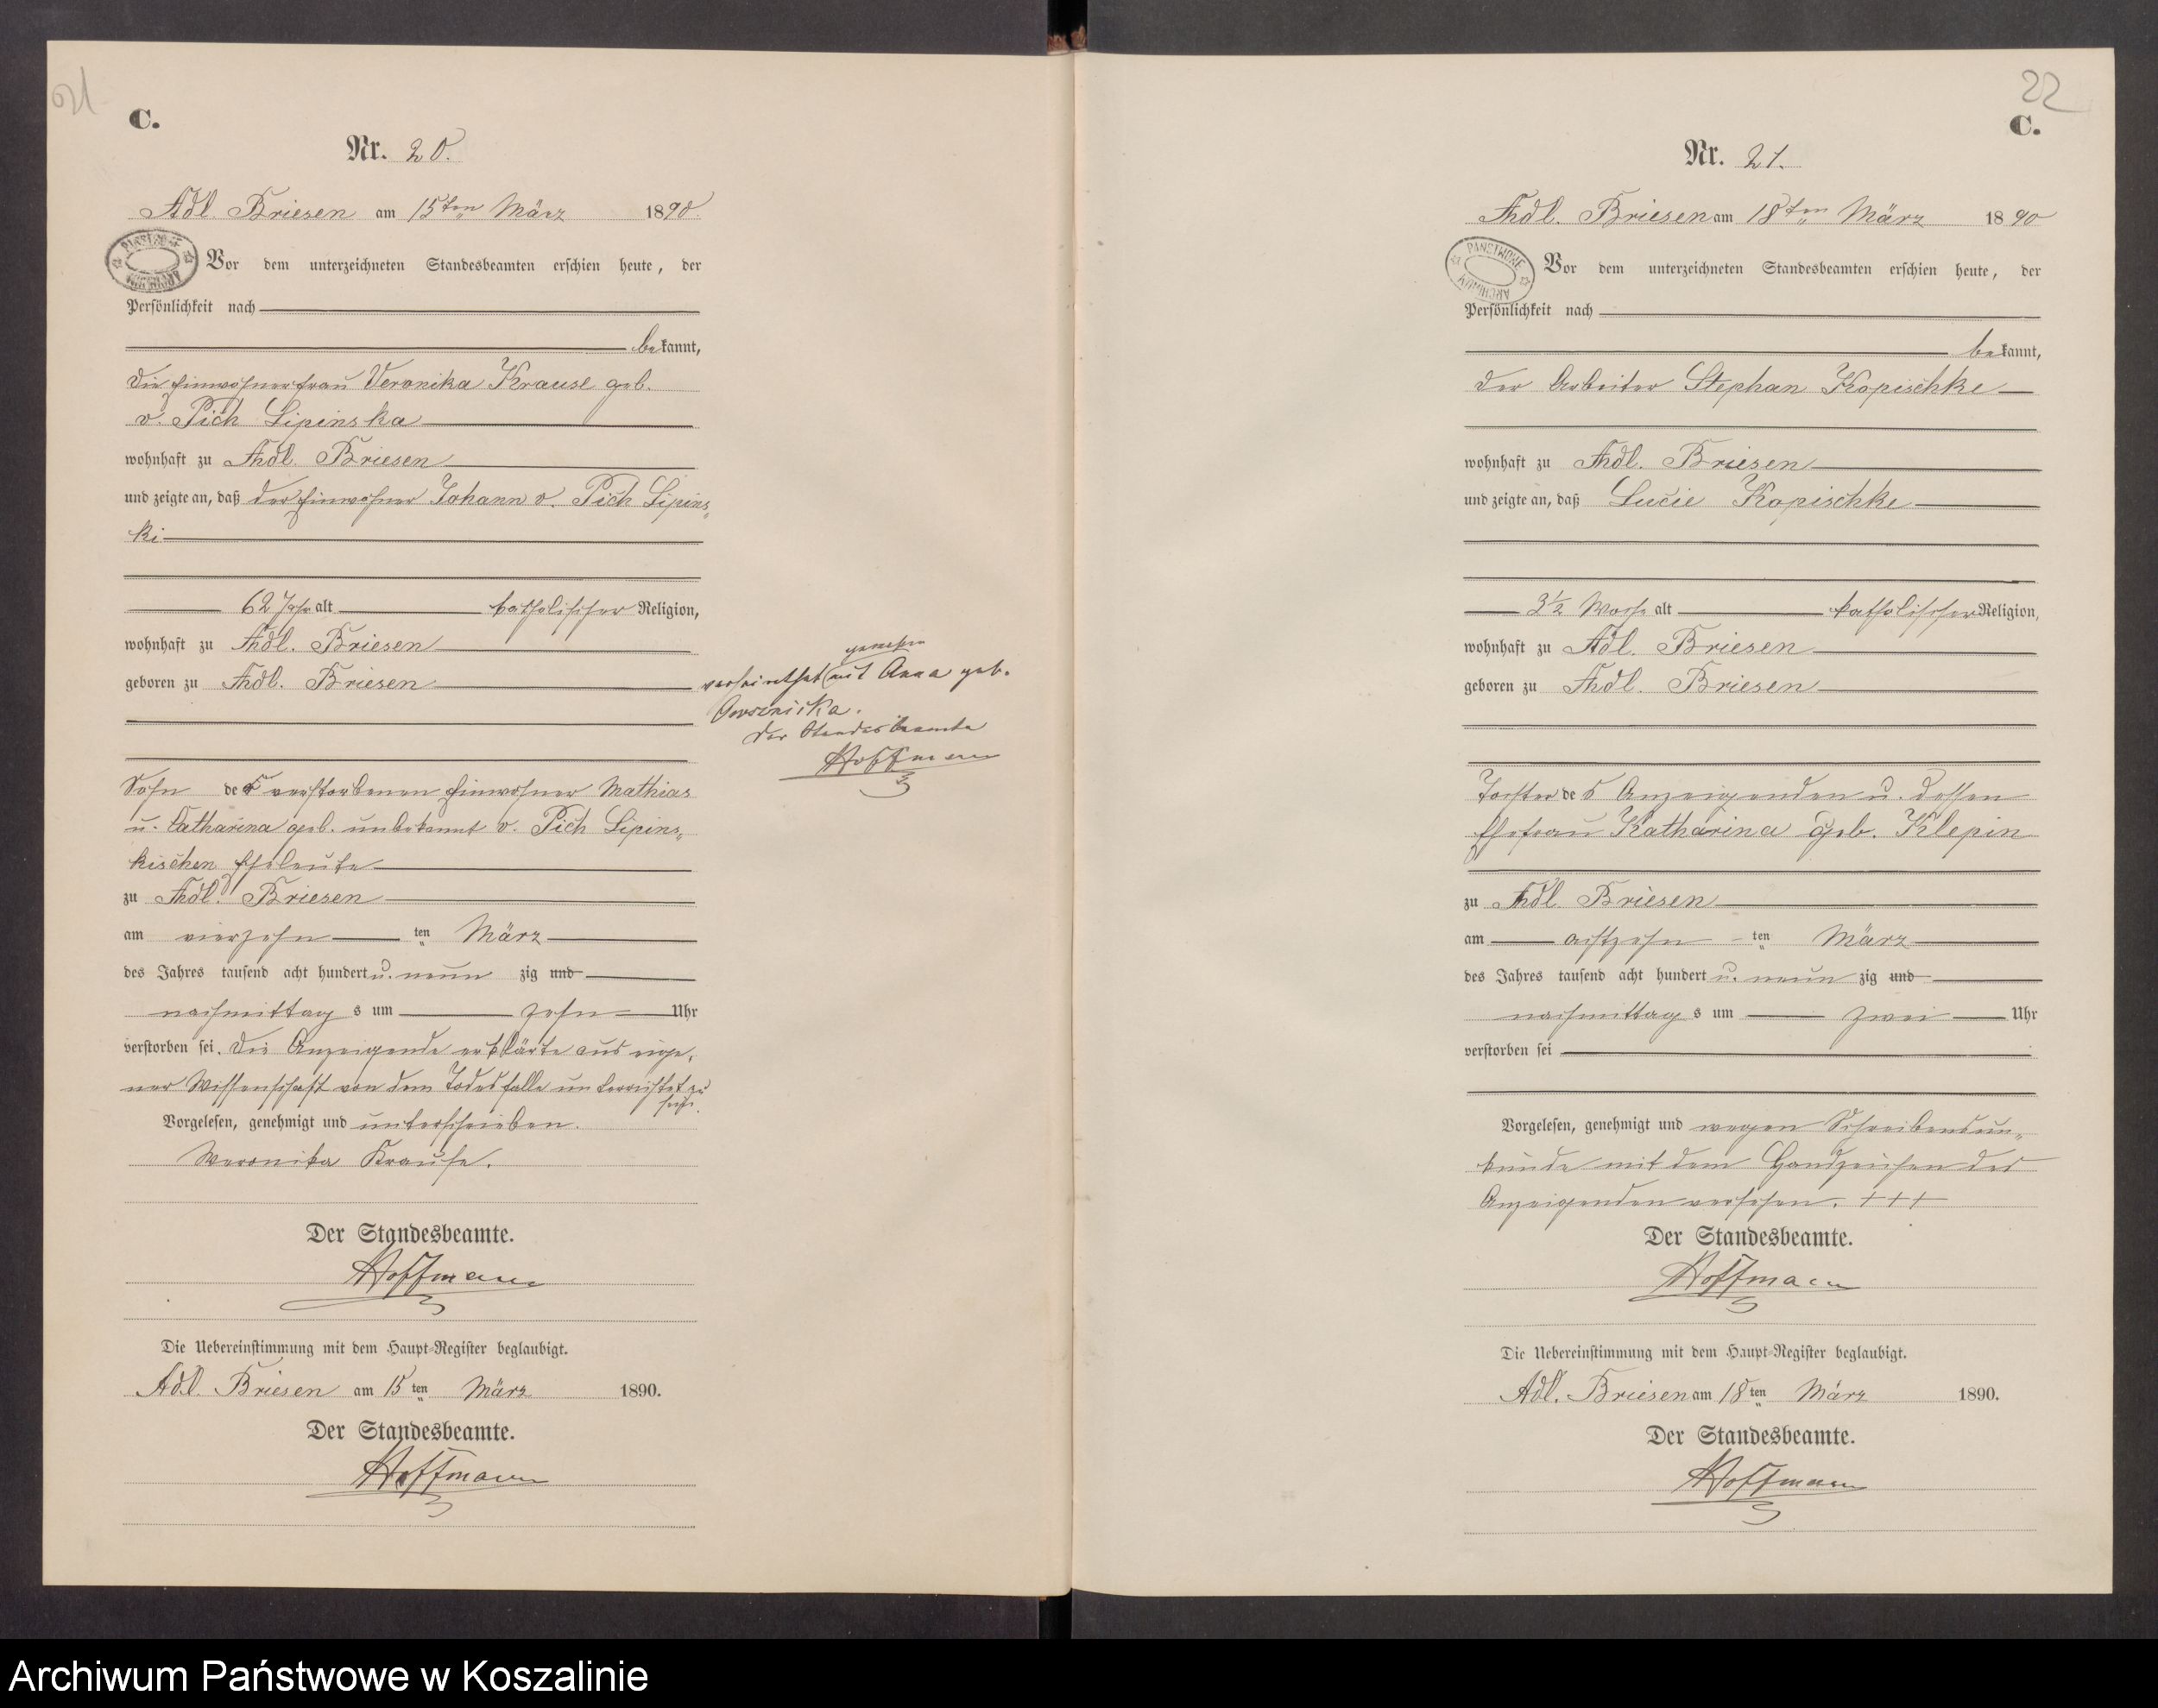 21
C.
Nr. 20.
Adl. Briesen am 15ten März 1890.
PAŃSTWOWE ARCHIWUM
Vor dem unterzeichneten Standesbeamten erschien heute, der
Persönlichkeit nach
bekannt,
die Einwohnerfrau Veronika Krause geb.
v. Pich Lipinska
wohnhaft zu Adl. Briesen
und zeigte an, daß der Einwohner Johann v. Pich Lipins„
ki
62 Jahr alt katholischer Religion,
wohnhaft zu Adl. Briesen
geboren zu Adl. Briesen
gewesen
verheirathet mit Anna geb.
Der Standesbeamte
Hoffmann
Sohn des verstorbenen Einwohner Mathias
u. Catharina geb. unbekannt v. Pich Lipins„
kischen Eheleute
zu Adl. Briesen
am vierzehn ten März
des Jahres tausend acht hundert u. neun zig und
nachmittag s um zehn Uhr
verstorben sei. Die Anzeigende erklärte aus eige„
ner Wissenschaft von dem Todesfalle unterrichtet zu
sein.
Vorgelesen, genehmigt und unterschrieben.
Weronika Krause.
Der Standesbeamte.
Hoffmann
Die Uebereinstimmung mit dem Haupt-Register beglaubigt.
Adl. Briesen am 15ten März 1890.
Der Standesbeamte.
Hoffmann
22
C.
Nr. 21.
Adl. Briesen am 18ten März 1890
PAŃSTWOWE ARCHIWUM
Vor dem unterzeichneten Standesbeamten erschien heute, der
Persönlichkeit nach
bekannt,
der Arbeiter Stephan Kopischke
wohnhaft zu Adl. Briesen
und zeigte an, daß Lucie Kopischke
3½ Woche alt katholischer Religion,
wohnhaft zu Adl. Briesen
geboren zu Adl. Briesen
Tochter des Anzeigenden u. dessen
Ehefrau Katharina geb. Klepin
zu Adl. Briesen
am achtzehn ten März
des Jahres tausend acht hundert u. neun zig und
nachmittag s um zwei Uhr
verstorben sei
Vorgelesen, genehmigt und wegen Schreibensun„
kunde mit dem Handzeichen des
Anzeigenden versehen. +++
Der Standesbeamte.
Hoffmann
Die Uebereinstimmung mit dem Haupt-Register beglaubigt.
Adl. Briesen am 18ten März 1890.
Der Standesbeamte.
Hoffmann
Archiwum Państwowe w Koszalinie